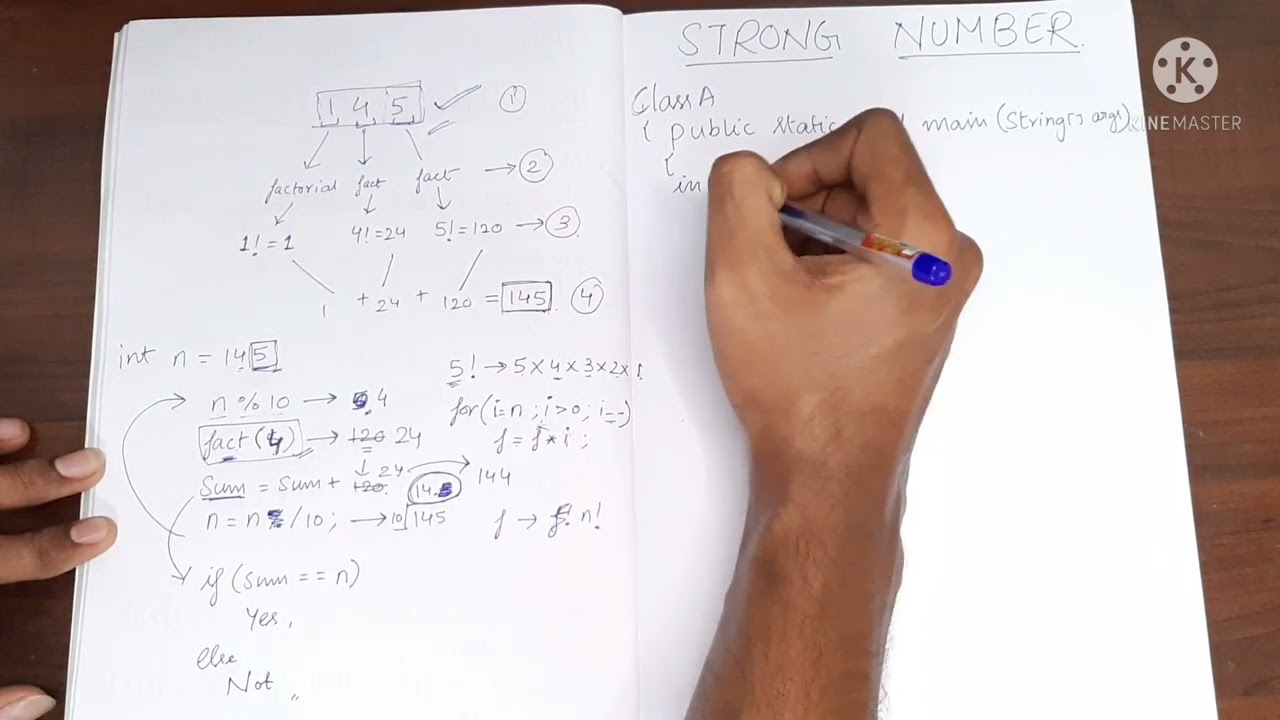 1 4 5 1
factorial fact fact → 2
1! = 1 4! = 24 5! = 120 → 3
1 + 24 + 120 = 145. 4
int n = 145
n % 10 → 4
fact(4) → 120 24
Sum = Sum + 120. 24 14 144
n = n / 10; → 10 145
if (sum == n)
Yes,
else
Not
5! → 5 x 4 x 3 x 2 x 1
for(i=n; i>0; i--)
f = f * i;
f → n!
STRONG NUMBER.
Class A
{ public static main (String[] args)
{
in
K
KINEMASTER